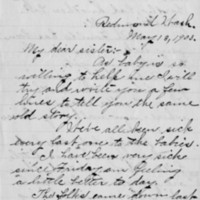 May 10, 1903.
My dear sister:-
As baby is
willing to help me I'll
try and write you a few
lines to tell you the same
old story.
We've all been sick
every last one to the babies.
I have been very sick
since Friday am feeling
a little better to day.
The folks came down last